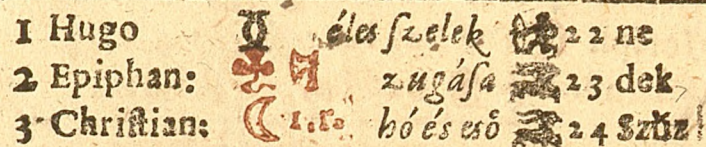 1 Hugo ☿ éles ſzelek 22 ne
2 Epiphan: zugáſa 23 dek
3 Chriſtian: ☾ 1.r. hó és eső 24 Szűz